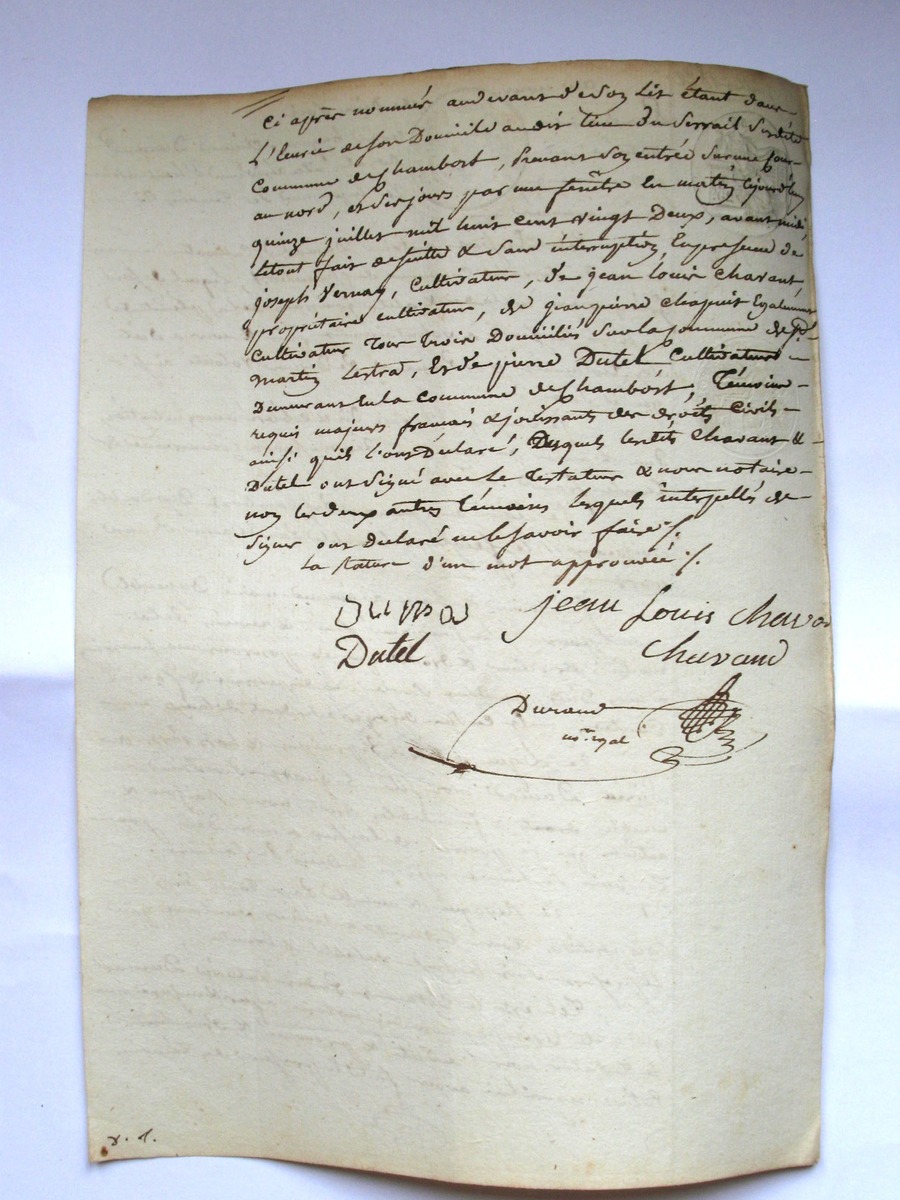 Ci après nommés audevant de son lit étant dans
L'Ecurie de son Domicile audit lieu du Serrail Susdite
Commune de Chambost, Prenant son entrée sur une Cour
au nord, et ses jours par une fenêtre le matin ajourd'huy
quinze juillet mil huit cent vingt Deux, avant midi,
letout fait de suitte & sans interruption, En présence de
joseph Vernay, Cultivateur, de jean Louis Chavant,
propriétaire cultivateur, de jeanpierre Chapuit Egalement
Cultivateur Tous Trois Domiciliés sur la Commune de St.
Martin Lestra, Et de pierre Dutel Cultivateur
Demeurant En la commune de Chambost, Témoins
requis majeurs français & jouissants des droits Civils
ainsi quils l'ont Déclaré, Desquels lesdits Chavant &
Dutel ont Signé avec le Testateur & nous notaire
non les deux autres témoins lesquels interpellés de
signer ont Déclaré ne le savoir faire ./.
La rature d'un mot approuvée ./.
jean Louis Chavan
Dutel Chavand
Durand
not. royal